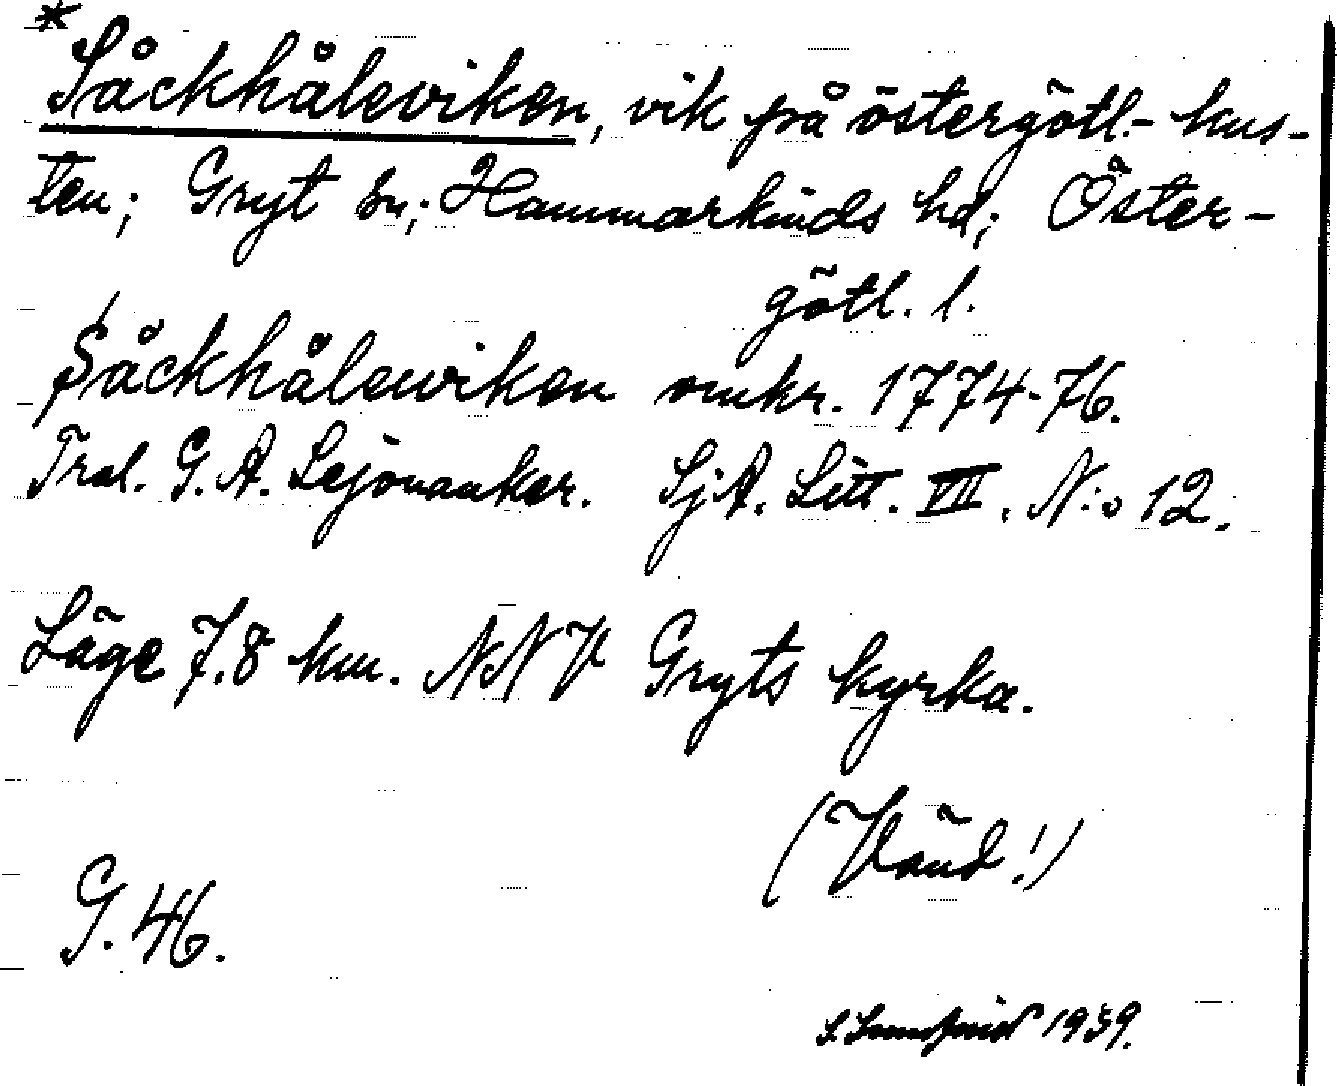 * Såckhåleviken, vik på östergötl.- kus-
ten; Gryt sn; Hammarkinds hd; Öster-
götl. l.
Såckhålewiken omkr. 1774-76.
Tral. G. A. Lejonanker. SjA. Litt. VII. N:o 12.
Läge 7.8 km. NNV Gryts kyrka.
(Vänd!)
G. 46.
1939.